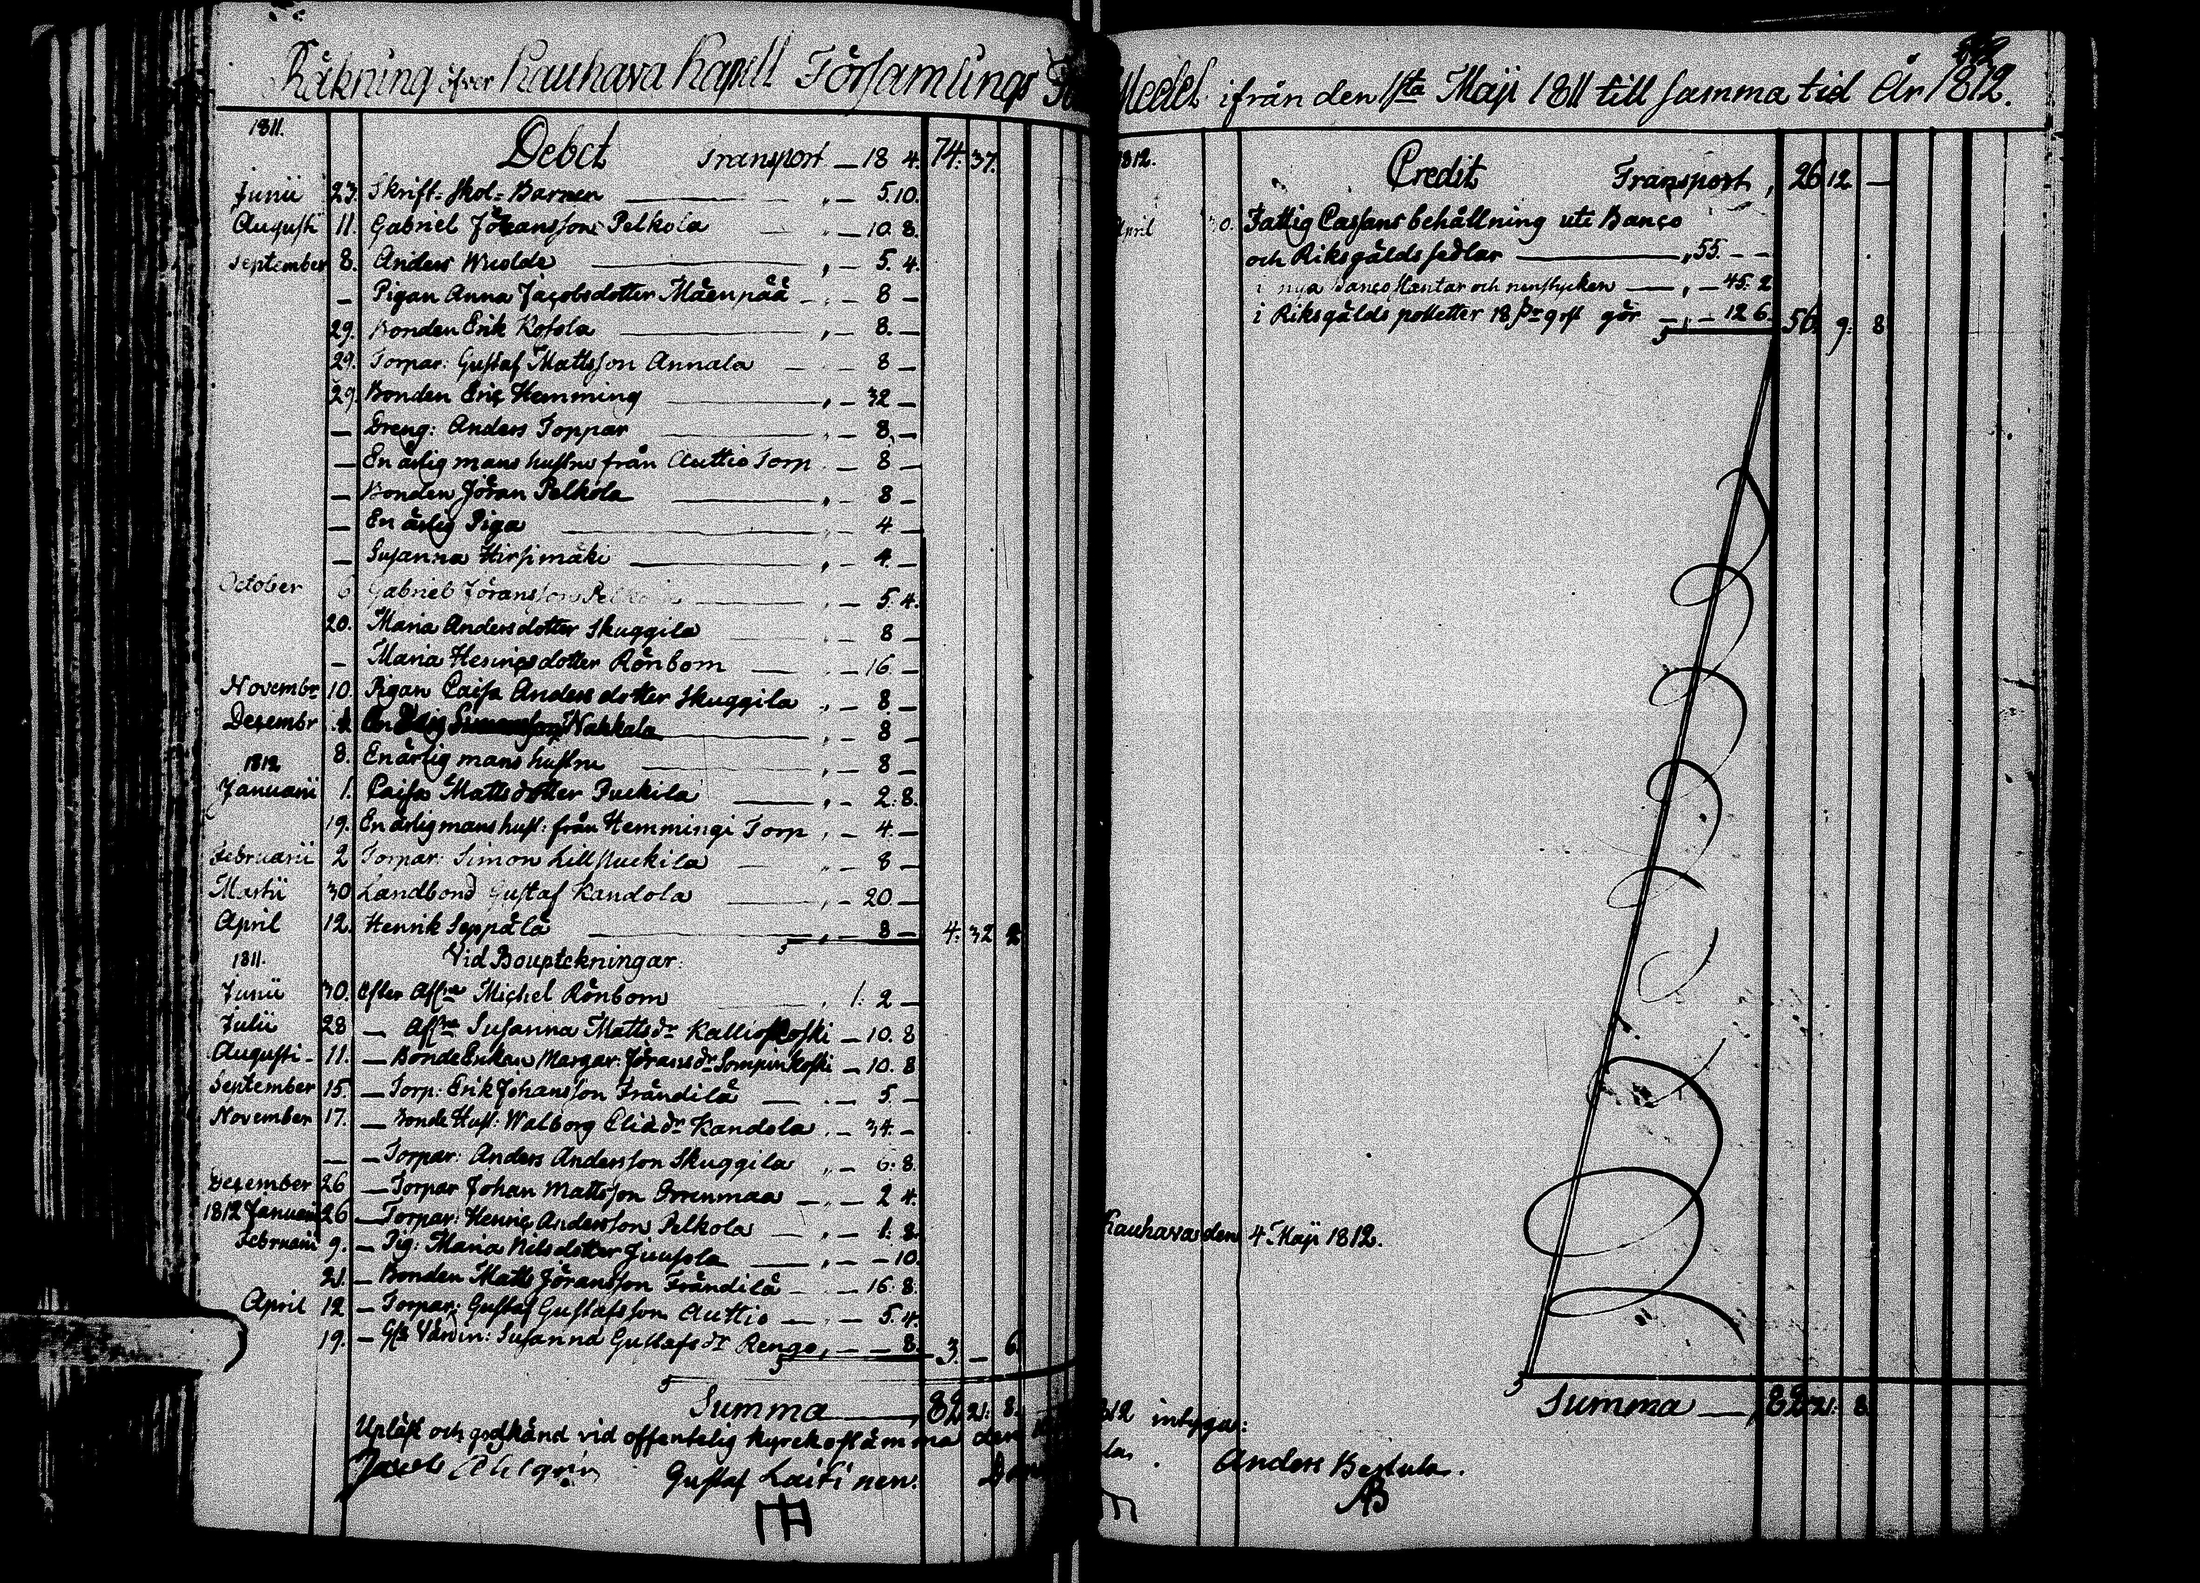 Räkning öfver Kauhava Kapell Församlings
1811.
Debet Transport — 18 4. 74. 37.
Junii 23. Skrift-skol-Barnen „ — 5.10.
Augusti 11. Gabriel Jöransson Pelkola „ — 10. 8.
September 8. Anders Wuolde „ — 5. 4.
— Pigan Anna Jacobsdotter Mäenpää — „ — 8 —
29. Bonden Erik Kotola „ — 8. —
29. Torpar: Gustaf Mattsson Annala — 8 —
29. Bonden Eric Hemming „ — 32 —
— Dreng: Anders Toppar „ — 8. —
— En ärlig mans hustru från Auttio Torp — 8 —
— Bonden Jöran Pelkola „ — 8 —
— En ärlig Piga „ — 4 —
— Susanna Hirsimäki „ — 4. —
October 6 Gabriel Jöransson „ — 5. 4.
20. Maria Andersdotter Skuggila „ — 8 —
— Maria Henricsdotter Rönbom — 16. —
Novembr. 10. Pigan Caisa Andersdotter Skuggila „ — 8. —
Decembr Nakkala „ — 8 —
8. En ärlig mans hustru „ — 8 —
1812
Januarii 1. Caisa Mattsdotter Puckila „ — 2. 8.
19. En ärlig mans hust: från Hemmingi Torp „ — 4. —
Februarii 2 Torpar: Simon Lillpuckila „ — 8 —
Martii 30 Landbond Gustaf Kandola „ — 20 —
April 12. Henrik Seppälä „ — 8 — 4. 32 2
1811. Vid Bouptekningar:
Junii 30. Efter Afl:ne Michel Rönbom „ 1. 2 —
Julii 28 — Afl:na Susanna Mattsdr Kalliokoski — 10. 8
Augusti 11. — Bonde Enkan Margar: Jöransdr Sompinkoski — 10. 8
September 15. — Torp: Erik Johansson Frändilä — 5 —
November 17. — Bonde Hust: Walborg Eliädr Kandola „ — 34. —
— — Torpar: Anders Andersson Skuggila „ — 6. 8.
December 26 — Torpar Johan Mattsson Orrenmaa — „ — 2 4.
1812 Januarii 26 — Torpar: Henric Andersson Pelkola — „ — 1. 8.
Februarii 9. — Pig: Maria Nilsdotter Jiussola „ — — 10.
21. — Bonden Matts Jöransson Frändilä — 16. 8.
April 12 — Torpar: Gustaf Gustafsson Auttio — „ — 5. 4.
19. — Susanna Gustafsdr Rengo „ — — 8. 3. — 6.
Summa —, 82 21. 8.
Upläst och godkänd vid offentelig kyrckostämma den
Jacob Gustaf Laitinen.
Medel ifrån den 1sta Maji 1811 till samma tid År 1812.
1812.
Credit Transport, 26 12 —
April 30. Fattig Cassans behållning uti Banco
och Riksgälds sedlar „ 55. — —
i nya Banco slantar och runstycken — „ — 45. 2
i Riksgälds polletter 18 gör — „ — 12 6. 56. 9. 8
Kauhava den 4 Maji 1812.
Summa —, 82 21. 8.
1812 intygar:
Anders Bertula.
AB